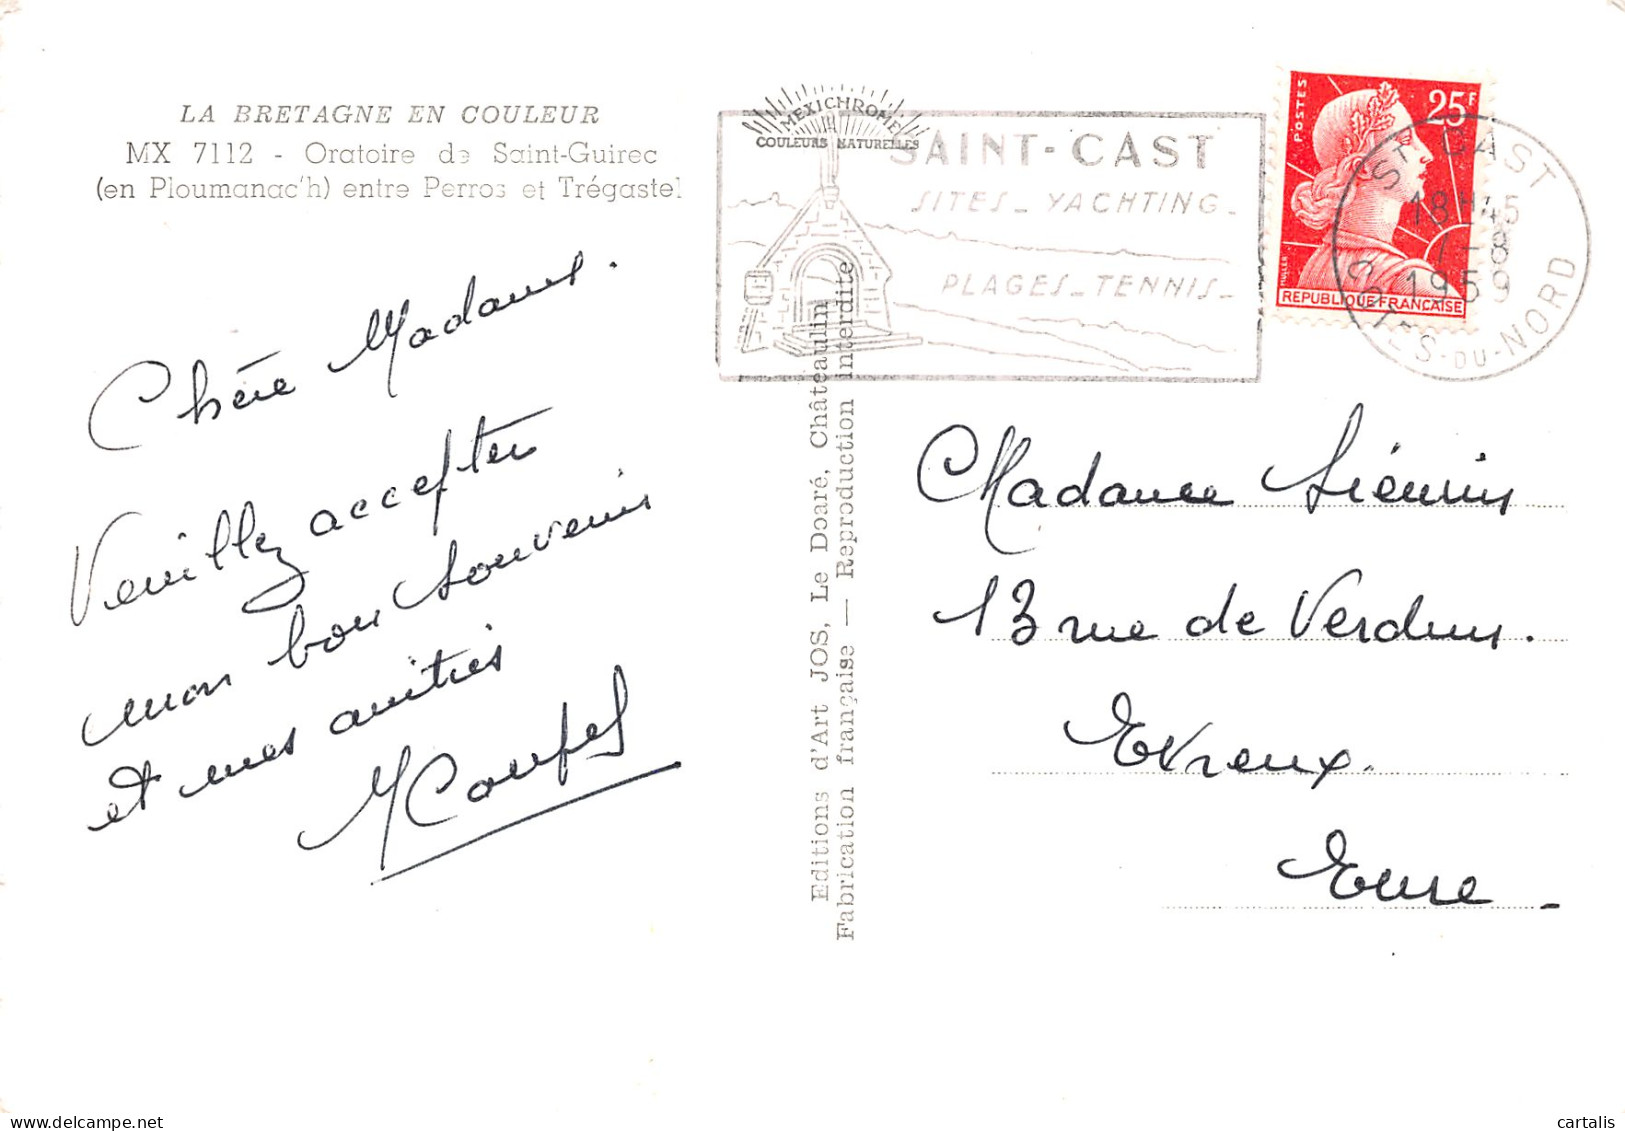 LA BRETAGNE EN COULEUR
MX 7112 - Oratoire de Saint-Guirec
(en Ploumanac'h) entre Perros et Trégastel
MEXICHROME
COULEURS NATURELLES
SAINT-CAST
SITES - YACHTING -
PLAGES - TENNIS -
POSTES
25F
MULLER
REPUBLIQUE FRANÇAISE
ST CAST
18H45
7-8
1959
COTES-DU-NORD
Chère Madame.
Veuillez accepter
mon bon souvenir
et mes amitiés
Editions d'Art JOS, Le Doaré, Châteaulin
Fabrication française — Reproduction interdite
Madame
13 rue de Verdun.
Evreux.
Eure -
cartalis